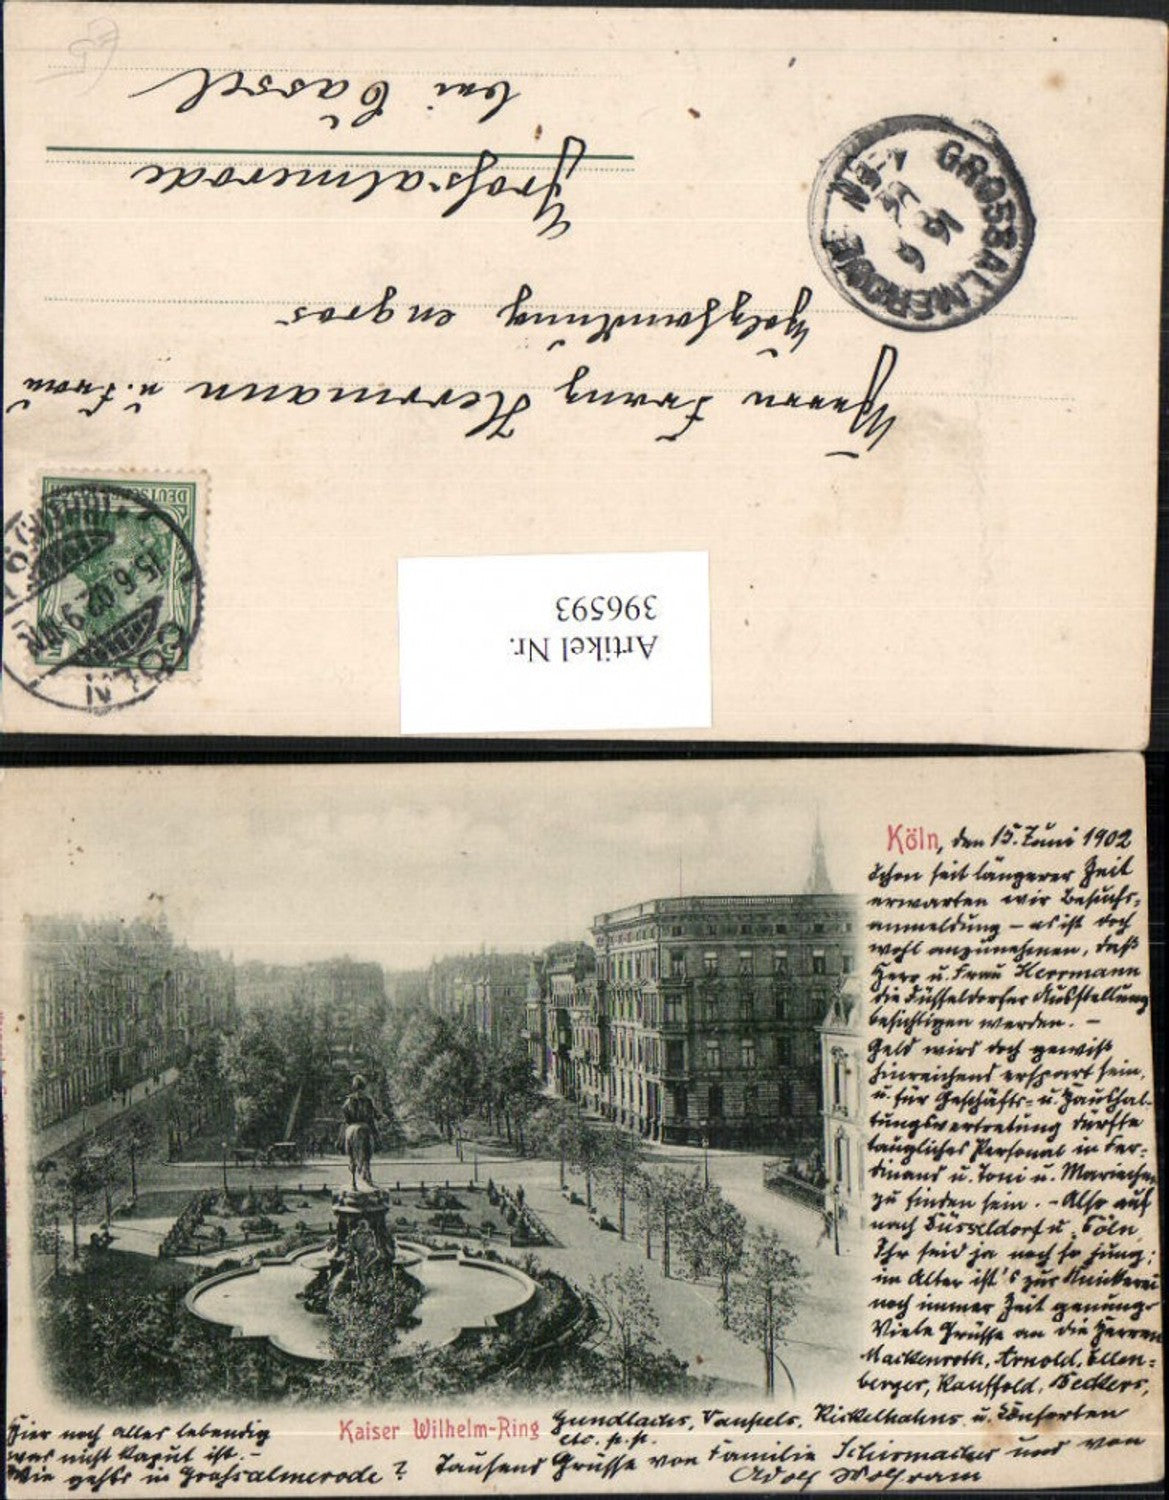 Herrn Franz Herrmann u. Frau
Holzhandlung en gros
Grossalmerode
bei Cassel
GROSSALMERODE
DEUTSCHES REICH
CÖLN
15.6.02
Artikel Nr.
396593
Köln, den 15. Juni 1902
Schon seit längerer Zeit
erwarten wir Besuchs-
anmeldung – es ist doch
wohl anzunehmen, daß
Herr u. Frau Herrmann
die Düsseldorfer Ausstellung
besichtigen werden. –
Geld wird doch gewiß
hinreichend erspart sein,
u. für Geschäfts- u. Haushal-
tungsvertretung dürfte
taugliches Personal in Fer-
dinand u. Toni u. Mariechen
zu finden sein. – Also auf
nach Düsseldorf u. Cöln
Ihr seid ja noch so jung;
im Alter ist's zur Knickerei
noch immer Zeit genung.
Viele Grüsse an die Herren
Mackenroth, Arnold, Ellen-
berger, Kauffold, Becklers,
Gundlachs, Vaupels, Rickelhahns u. Konsorten
etc. p. p.
Kaiser Wilhelm-Ring
Hier noch alles lebendig
was nicht kaput ist. –
Wie gehts in Grossalmerode?
Tausend Grüsse von Familie Schirmacher und von
Adolf Wolfram